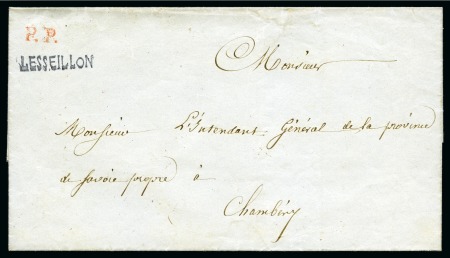 P.P.
LESSEILLON
Monsieur
Monsieur L'Intendant Général de la province
de Savoie propre à
Chambéry